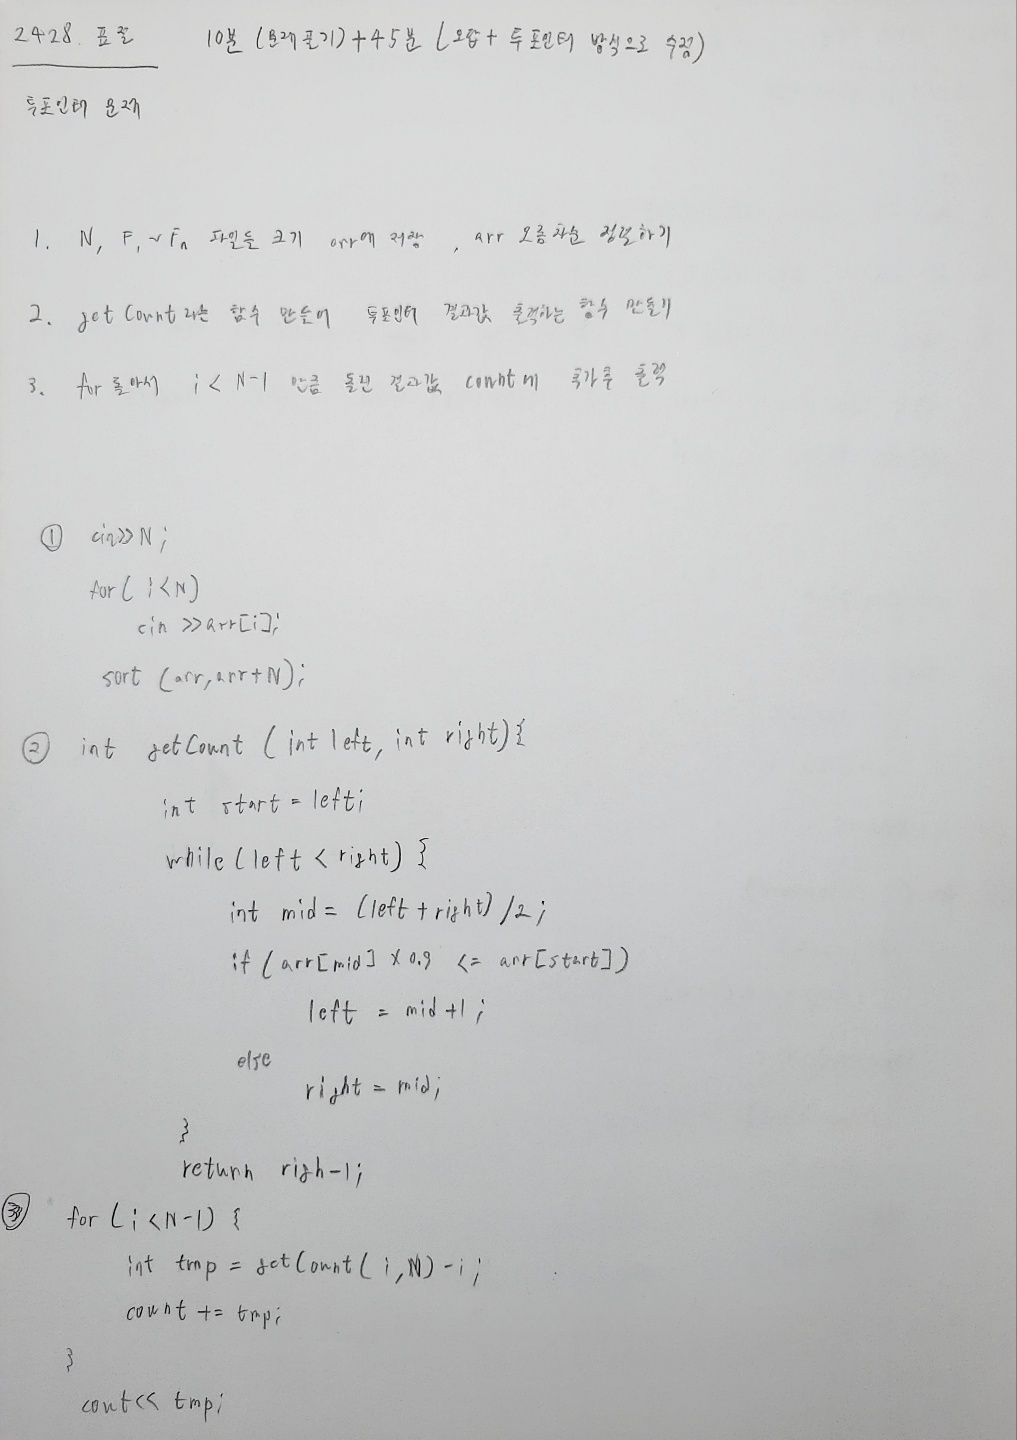 2428. 표절 10분 (문제풀기)+45분 (오답+ 투포인터 방식으로 수정)
투포인터 문제
1. N, F1~Fn 파일들 크기 arr에 저장, arr 오름차순 정렬하기
2. getCount라는 함수 만들어 투포인터 결과값 출력하는 함수 만들기
3. for 돌아서 i < N-1 만큼 돌린 결과값 count에 추가후 출력
① cin>>N;
for( i<N)
cin >>arr[i];
sort (arr,arr+N);
② int getCount (int left, int right){
int start = left;
while(left < right) {
int mid = (left+right)/2;
if (arr[mid] x 0.9 <= arr[start])
left = mid+1;
else
right = mid;
}
return righ-1;
③ for (i<N-1) {
int tmp = getCount( i,N)-i;
count += tmp;
}
cout<< tmp;